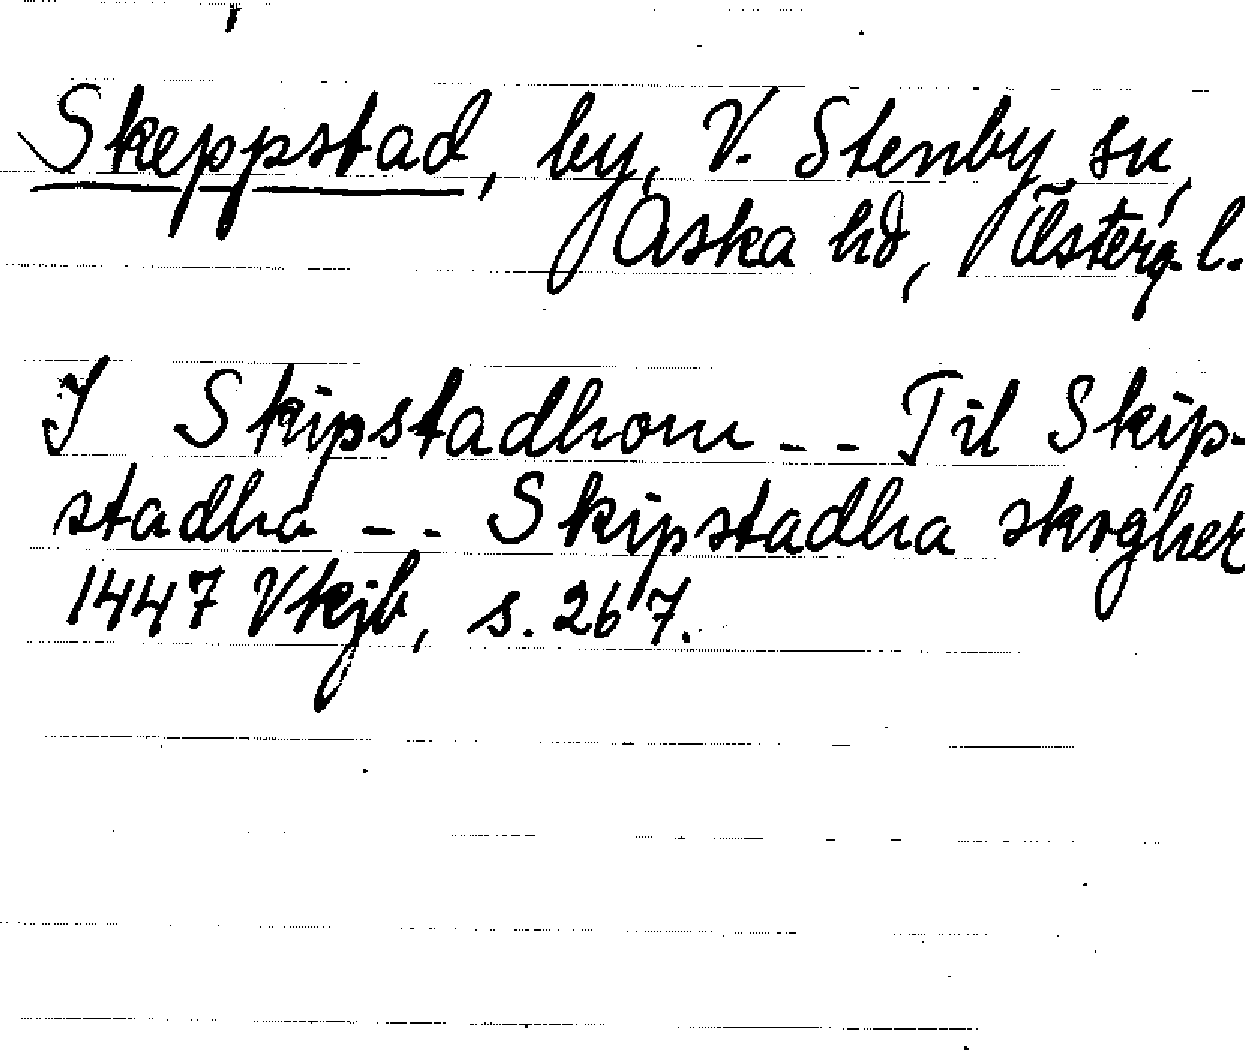 Skeppstad, by, V. Stenby sn,
Aska hd, Österg. l.
I Skipstadhom - - Til Skip-
stadha - - Skipstadha skogher
1447 Vtkjb, s. 267.